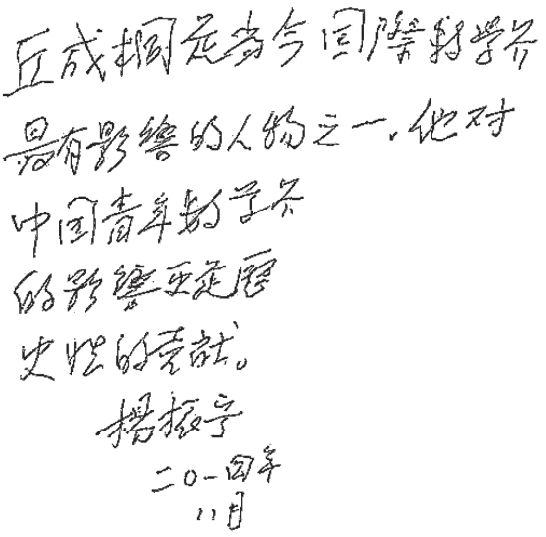 丘成桐是当今国際数学界
最有影響的人物之一，他对
中国青年数学界
的影響更是歷
史性的贡献。
楊振宁
二〇一四年
八月